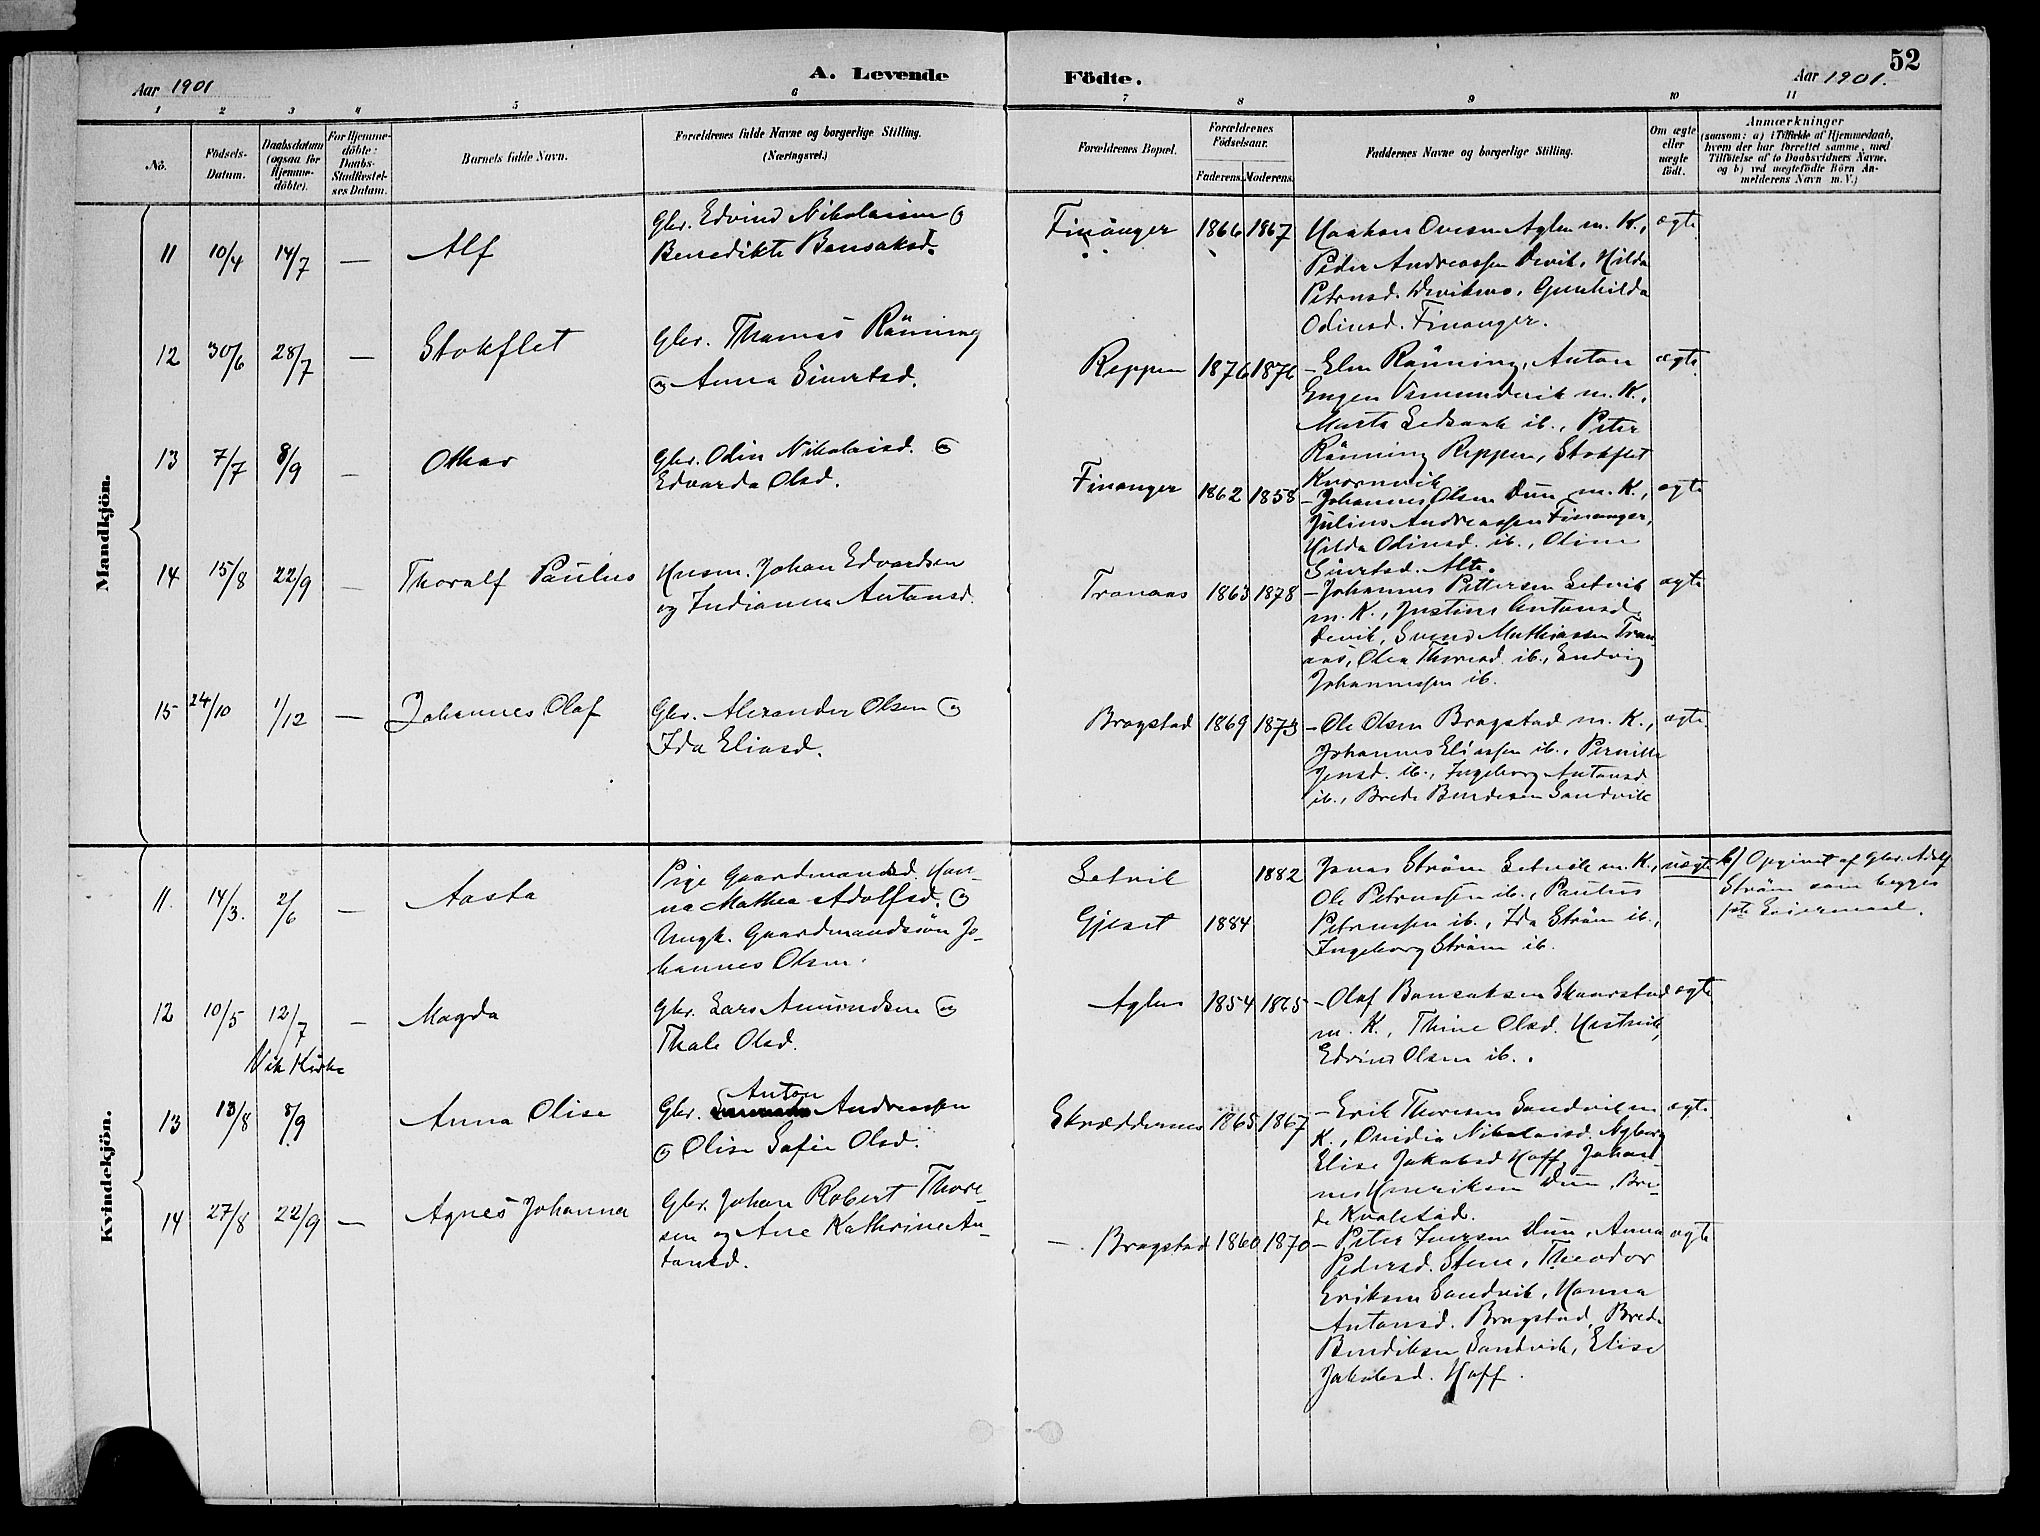 52
Aar 1901
A. Levende
Födte.
Aar 1901.
1 2 3 4 5 6 7 8 9 10 11
No.
Födsels-
Datum.
Daabsdatum
(ogsaa for
Hjemme-
döbte).
For Hjemme-
döbte:
Daabs-
Stadfæstel-
ses Datum.
Barnets fulde Navn.
Forældrenes fulde Navne og borgerlige Stilling.
(Næringsvei.)
Forældrenes Bopæl.
Forældrenes
Födselsaar.
Faderens. Moderens.
Faddernes Navne og borgerlige Stilling.
Om ægte
eller
uægte
født.
Anmærkninger
(saasom: a) i Tilfælde af Hjemmedaab,
hvem der har forrettet samme, med
Tilføielse af to Daabsvidners Navne,
og b) ved uægtefödte Börn An-
melderens Navn m.V.)
Mandkjön.
11 10/4 14/7 — Alf
Gbr. Edvind Nikolaisen og
Benedikte Bensaksd.
Finanger 1866 1867
Haakon Ovesen Aglen m. K.,
Peder Andreassen Devik, Hilda
Petrusd. Devikmo, Gunhilda
Odinsd. Finanger.
ægte
12 30/6 28/7 — Stokflet
Gbr. Thomas Rönning
og Anna Sivertsd.
Reppen 1876 1876
— Elen Rönning, Anton
Eugen Vemundvik m. K.,
Marta Ledsaak ib., Peter
Rönning Reppen, Stokflet
Kvernvik
ægte
13 7/7 8/9 — Othar
Gbr. Odin Nikolaisd. og
Edvarda Olsd.
Finanger 1862 1858
— Johannes Olsen Dun m. K.,
Julius Andreassen Finanger,
Hilda Odinsd. ib., Oline
Sivertsd. Alte.
ægte
14 15/8 22/9 — Thoralf Paulus
Husm. Johan Edvardsen
og Indianna Antonsd.
Tranaas 1863 1878
— Johannes Pettersen Setvik
m. K., Justine Antonsd.
Devik, Svend Mathiassen Tran-
aas, Olea Thoresd. ib., Ludvig
Johannessen ib.
ægte
15 24/10 1/12 — Johannes Olaf
Gbr. Alexander Olsen og
Ida Eliasd.
Bragstad 1869 1873
— Ole Olsen Bragstad m. K.,
Johannes Eliassen ib., Pernille
Jensd. ib., Ingeborg Antonsd
ib., Brede Bendiksen Sandvik
ægte
Kvindekjön.
11. 14/3. 2/6 — Aasta
Pige Gaardmandsd. Han-
na Mathea Adolfsd. og
Ungk. Gaardmandssön Jo-
hannes Olsen.
Setvik 1882
Gjeset 1884
Jonas Ström Setvik m. K.,
Ole Petrussen ib., Paulus
Petrussen ib., Ida Ström ib.,
Ingeborg Ström ib.
uægte
b) Opgivet af Gbr. Adolf
Ström som begges
1ste Leiermaal.
12 10/5 12/7 — Magda
Vik Kirke
Gbr. Lars Amundsen og
Thale Olsd.
Aglen 1854 1865
— Olaf Bensaksen Skaarstad
m. K., Thine Olsd. Hestvik,
Edvind Olsen ib.
ægte
13 13/8 8/9 Anna Olise
Gbr. Anton Andreassen
og Olise Sofie Olsd.
Skrædderнes 1865 1867
— Erik Thoresen Sandvik m
K., Ovidia Nikolaisd. Nyborg
Elise Jakobsd Hoff, Johan-
nes Henriksen Dun, Bre-
de Kvalstad.
ægte.
14 27/8 22/9 — Agnes Johanna
Gbr. Johan Robert Thore-
sen og Ane Kathrine An-
tonsd.
— Bragstad 1860 1870
— Peter Iversen Dun, Anna
Pedersd. Stene, Theodor
Eriksen Sandvik, Hanna
Antonsd. Bragstad, Brede
Bendiksen Sandvik, Elise
Jakobsd. Hoff.
ægte